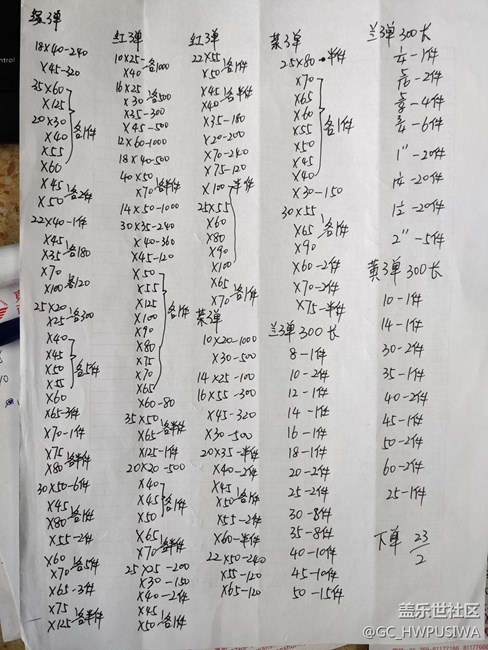 绿3弹
18×40-240
×45-320
35×60
×125
20×30
×40
×55
×60
各1件
×45
×50
各2件
22×40-1件
×45
×35
各180
×70
×100
各120
25×20
×25
各300
×40
×45
×50
×55
×60
各5件
×65-3件
×70-1件
×75
×80
各半件
30×50-6件
×45
×80
各1件
×55-2件
×60
×70
各5件
×65-3件
×75
×125
各半件
红3弹
10×25
×40
各1000
16×25
×30
各500
×35-300
×45-500
12×60-1000
18×40-500
40×50
×70
各半件
14×50-1000
30×35-240
×40-360
×45-120
×50
×55
×125
×100
×90
×80
×75
×70
×65
各1件
×60-80
35×50
×65
各半件
×125-1件
20×20-500
×40
×45
×50
各1件
×65
×70
各半件
25×25-200
×30-150
×40-2件
×45
×50
各1件
红3弹
22×55
×50
各1件
×45
×40
各半件
×35-180
×20-200
×70-240
×75-120
×100-半件
25×55
×60
×80
×90
×100
×65
×70
各1件
菜3弹
10×20-1000
×30-500
14×25-100
16×55-300
×45-320
×30-500
20×35-半件
×40-2件
×45
×50
各1件
×55-2件
×60-半件
22×50-240
×55-120
×65-120
菜3弹
25×80-半件
×70
×65
×60
×55
×50
×45
×40
各1件
×30-150
30×55
×65
×90
各1件
×60-2件
×70-2件
×75-半件
兰3弹 300长
8-1件
10-2件
12-1件
14-1件
16-1件
18-1件
20-2件
25-2件
30-8件
35-8件
40-10件
45-10件
50-15件
兰3弹 300长
1/4-1件
5/16-2件
5/8-4件
3/4-6件
1"-20件
1 1/4-20件
1 1/2-20件
2"-5件
黄3弹 300长
10-1件
14-1件
30-2件
35-1件
40-2件
45-1件
50-2件
60-2件
25-1件
下单 23/2
盖乐世社区
@GC_HWPUSIWA